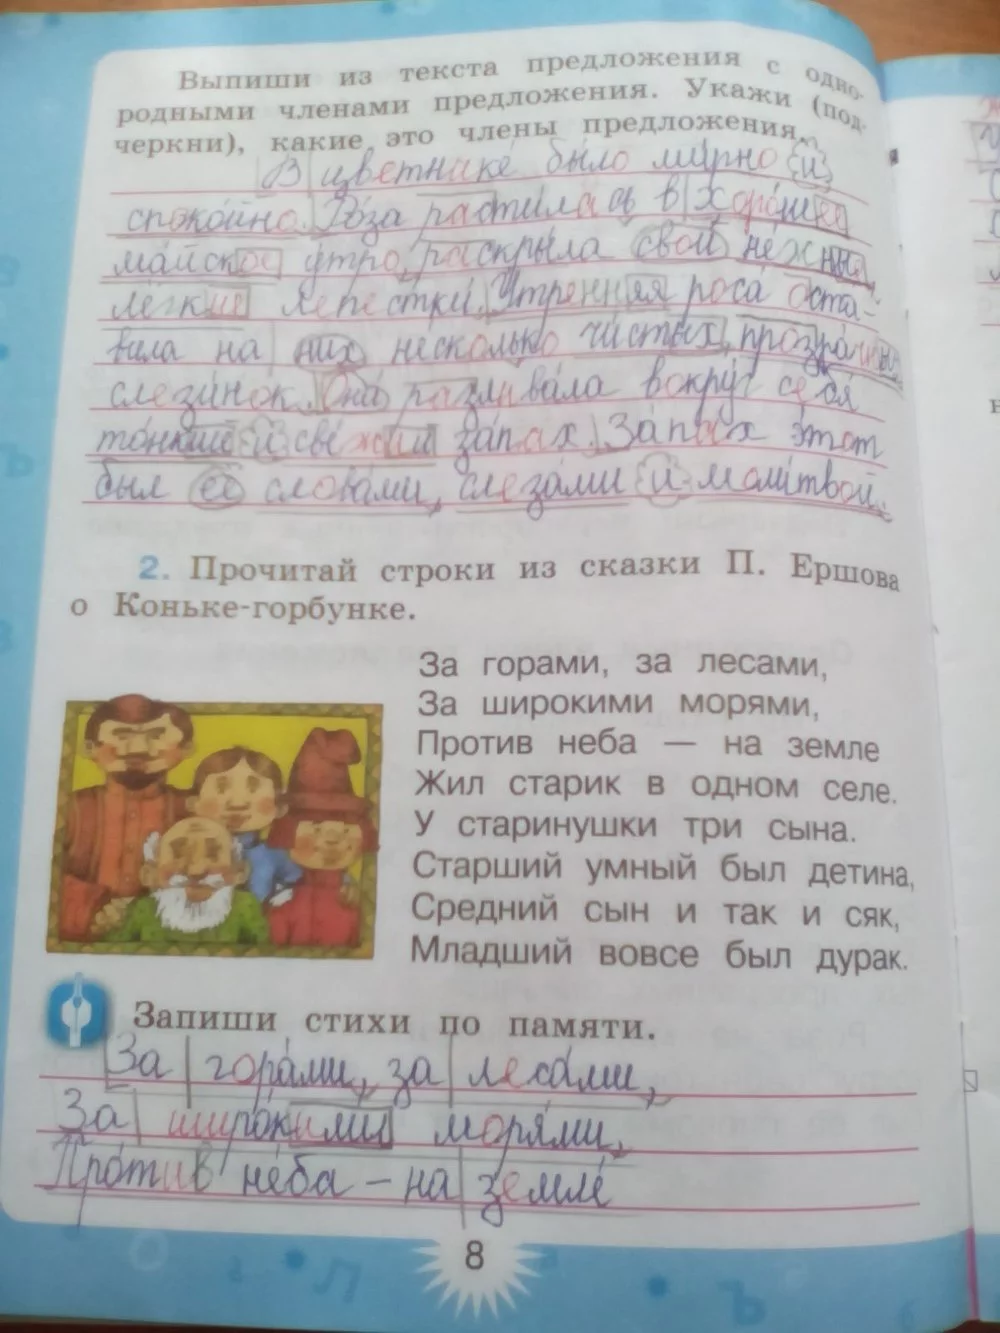 Выпиши из текста предложения с одно-
родными членами предложения. Укажи (под-
черкни), какие это члены предложения.
В цветнике было мирно и
спокойно. Роза растила в хорошее
майское утро, раскрыла свои нежные
лёгкие лепестки. Утренняя роса оста-
вила на них несколько чистых, прозрачных
слезинок. Она разливала вокруг себя
тонкий и свежий запах. Запах этот
был её словами, слезами и молитвой.
2. Прочитай строки из сказки П. Ершова
о Коньке-горбунке.
За горами, за лесами,
За широкими морями,
Против неба — на земле
Жил старик в одном селе.
У старинушки три сына.
Старший умный был детина,
Средний сын и так и сяк,
Младший вовсе был дурак.
Запиши стихи по памяти.
За горами, за лесами,
За широкими морями,
Против неба – на земле
8